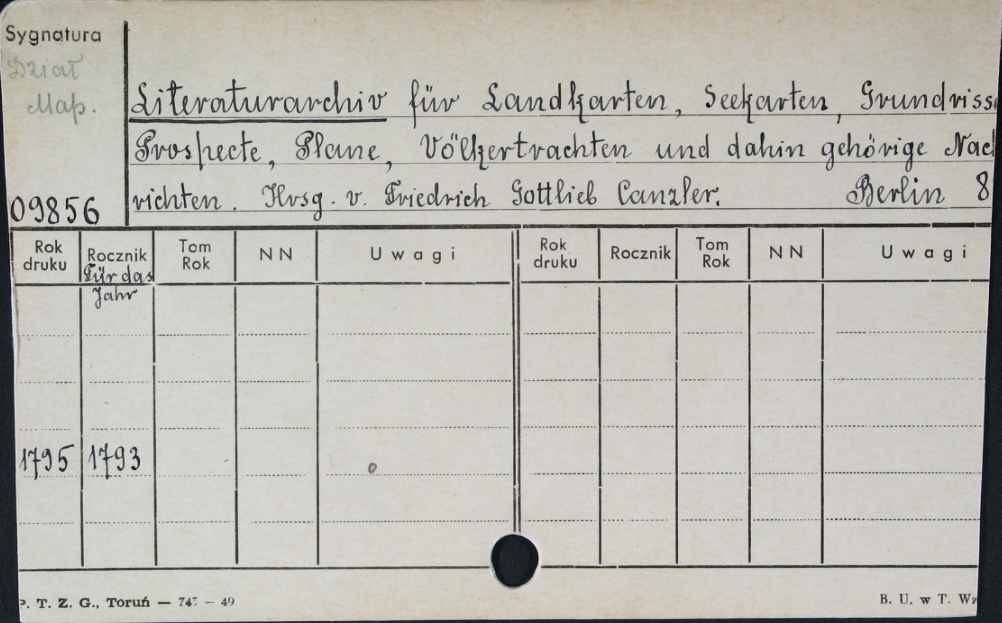 Sygnatura
Dział
Map.
Literaturarchiv für Landkarten, Seekarten, Grundriss
Prospecte, Plane, Völkertrachten und dahin gehörige Nac
09856 richten. Hrsg. v. Friedrich Gottlieb Canzler. Berlin 8
Rok druku Rocznik Tom Rok NN Uwagi Rok druku Rocznik Tom Rok NN Uwagi
Für das
Jahr
1795 1793
P. T. Z. G., Toruń — 747 — 49 B. U. w T. Wz